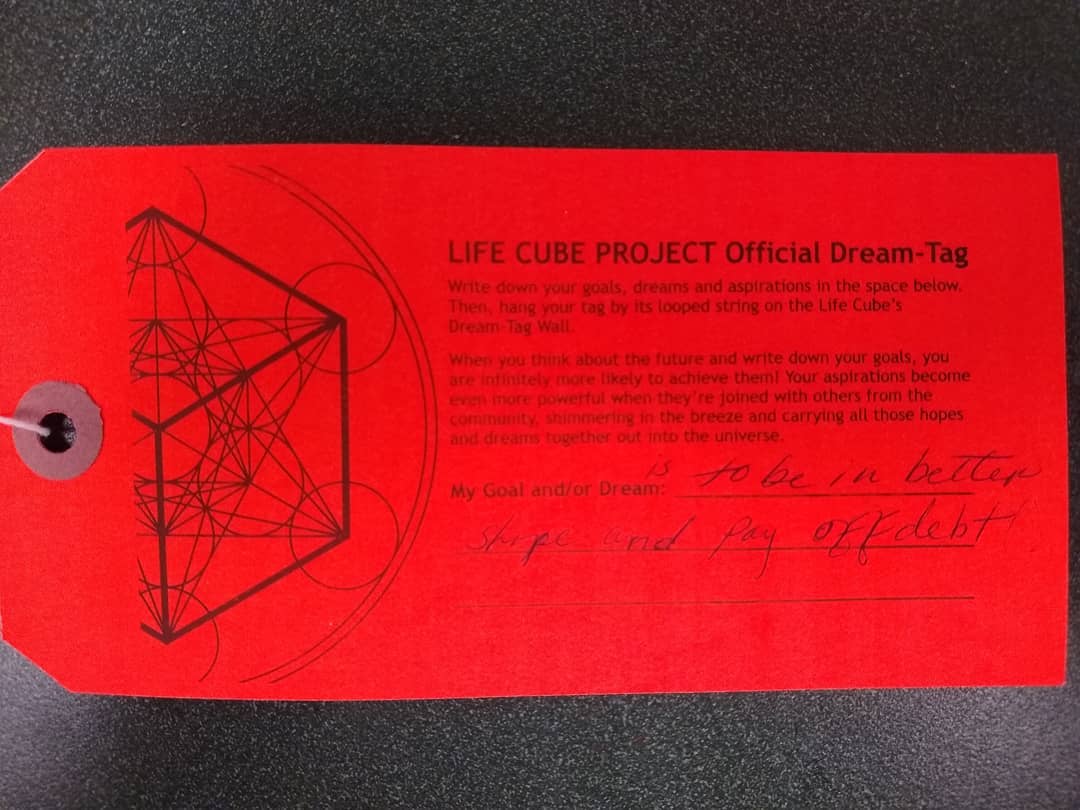 LIFE CUBE PROJECT Official Dream-Tag
Write down your goals, dreams and aspirations in the space below.
Then, hang your tag by its looped string on the Life Cube's
Dream-Tag Wall.
When you think about the future and write down your goals, you
are infinitely more likely to achieve them! Your aspirations become
even more powerful when they're joined with others from the
community, shimmering in the breeze and carrying all those hopes
and dreams together out into the universe.
My Goal and/or Dream: is to be in better
shape and pay off debt!